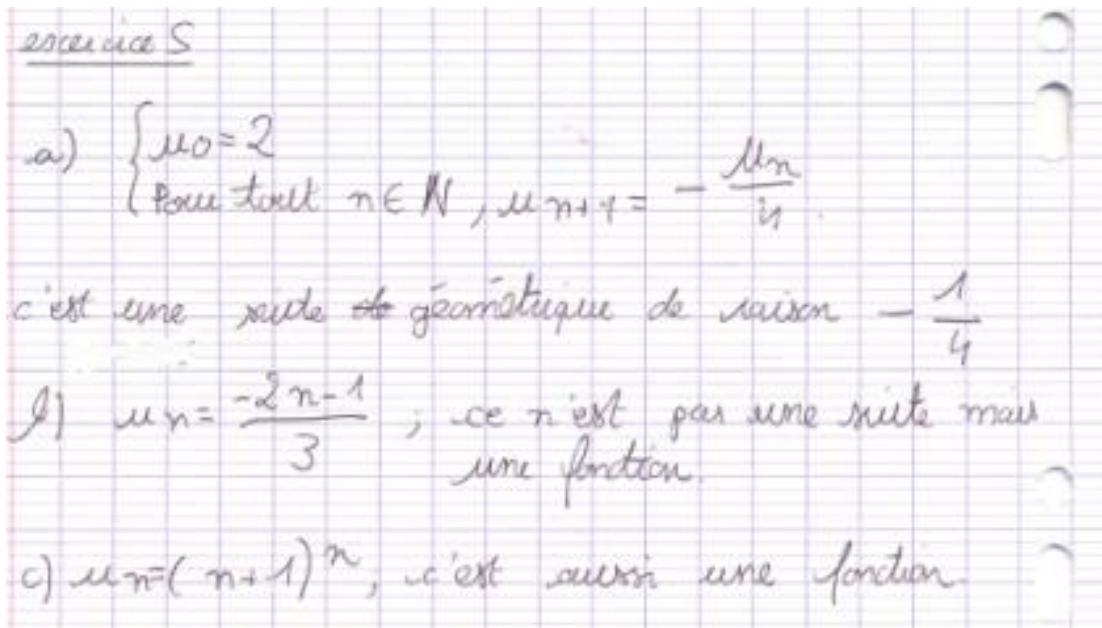 exercice 5
a) { u0 = 2
Pour tout n ∈ ℕ, un+1 = - un/4
c'est une suite géométrique de raison - 1/4
b) un = (-2n-1)/3 ; ce n'est pas une suite mais
une fonction.
c) un = (n+1)^n, c'est aussi une fonction.